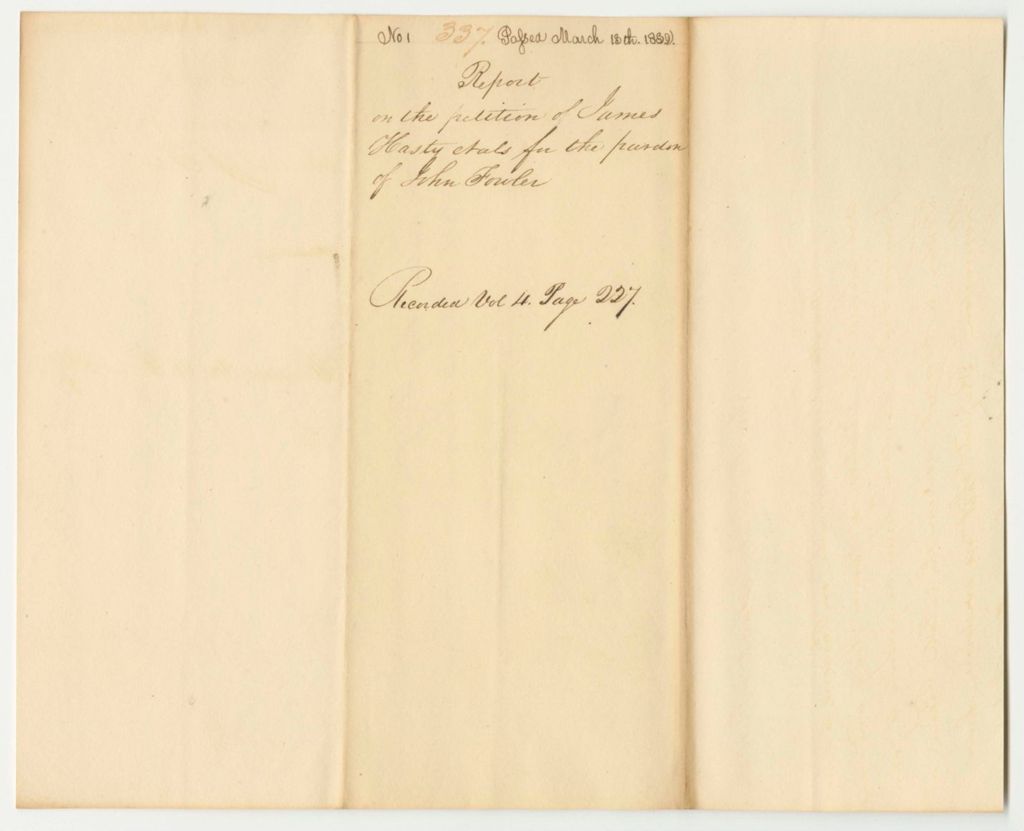 No 1 337. Passed March 13th. 1832.
Report
on the petition of James
Hasty et als for the pardon
of John Fowler
Recorded Vol 4. Page 227.